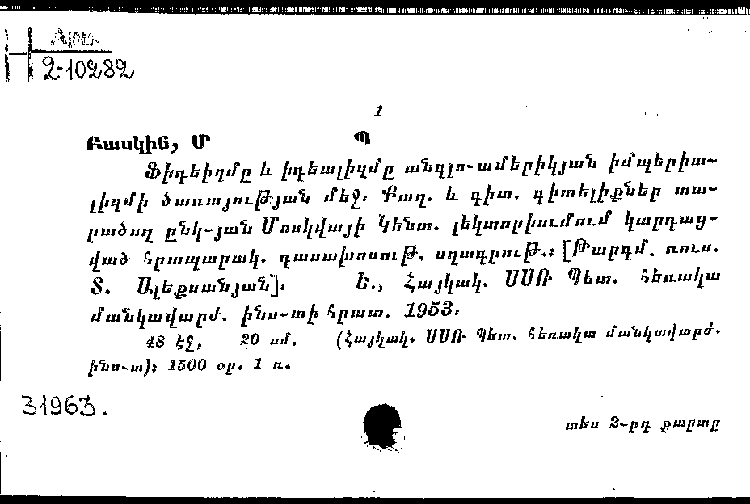 2-10282
1
Բասկին, Մ Պ
Ֆիդեիզմը և իդեալիզմը անգլո-ամերիկյան իմպերիա-
լիզմի ծառայության մեջ: Քաղ. և գիտ. գիտելիքներ տա-
րածող ընկ-յան Մոսկվայի Կենտ. լեկտորիումում կարդաց-
ված հրապարակ. դասախոսութ. սղագրութ.: [Թարգմ. ռուս.
Տ. Ալեքսանյան]: Ե., Հայկակ. ՍՍՌ Պետ. հեռակա
մանկավարժ. ինս-տի հրատ. 1953:
48 էջ, 20 սմ. (Հայկակ. ՍՍՌ Պետ. հեռակա մանկավարժ.
ինս-տ): 1500 օր. 1 ռ.
31963.
տես 2-րդ քարտը